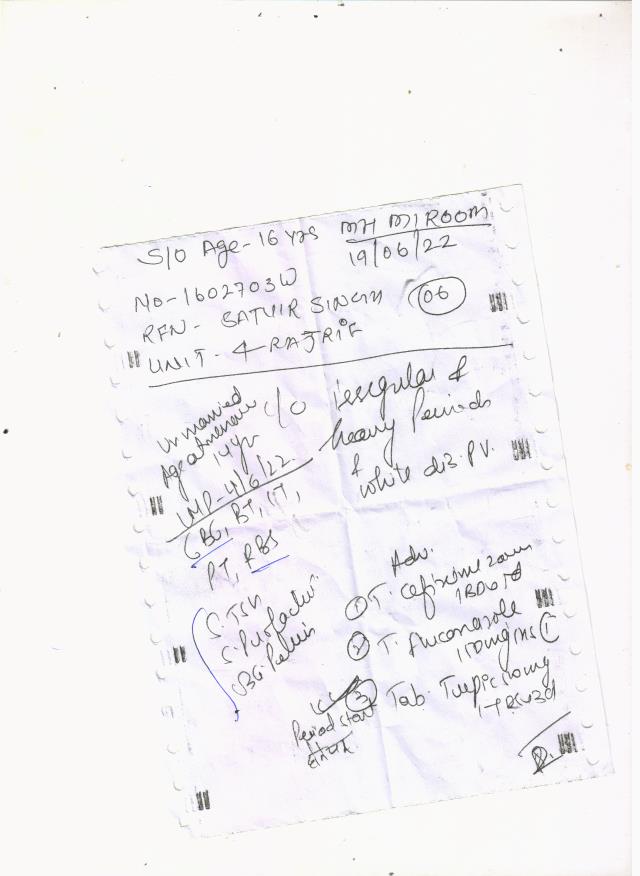 S/O Age-16 yrs MH MI ROOM
19/06/22
NO-1602703W
RFN - SATVIR SINGH 06
UNIT - 4 RAJRIF
unmarried
Age at menarche
14 yr
LMP-4/6/22
C/O irregular &
heavy Periods
& white dis. PV.
CBC, BT, CT,
PT, RBS
S. TSH
S. Prolactin
USG Pelvis
Adv.
① T. Cefixime 200mg
1BD
② T. Fluconazole
150mg
③ Tab.
Period start